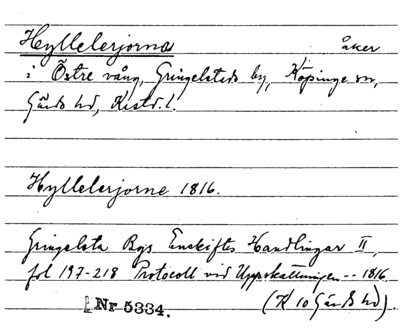 Hyllelerjorna åker
i Östre vång, Gringelsteds by, Köpinge sn,
Gärds hd, Kristd. l.
Hyllelerjorne 1816.
Gringelsta Bys Enskiftes Handlingar II,
fol 197-218 Protocoll vid Uppskattningen -- 1816.
(K 10 Gärds hd).
Nr 5334.